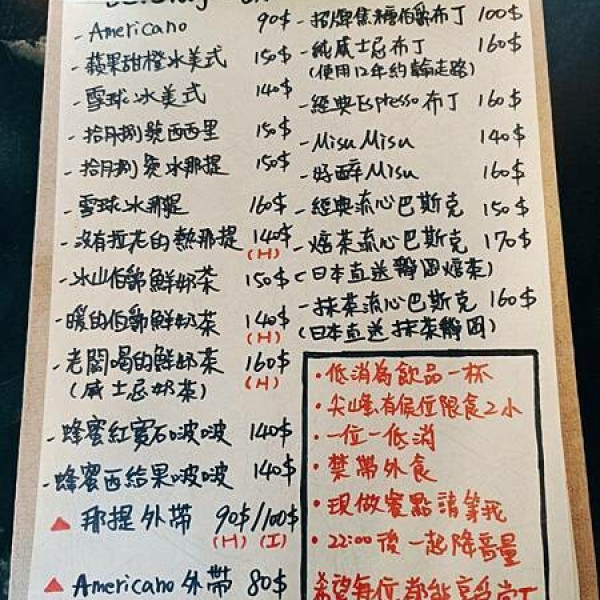 - Americano 90$
- 蘋果甜橙冰美式 150$
- 雪球冰美式 140$
- 拾月捌號西西里 150$
- 拾月捌號冰那提 150$
- 雪球冰那提 160$
- 沒有拉花的熱那提 140$
(H)
- 冰山伯爵鮮奶茶 150$
- 暖的伯爵鮮奶茶 140$
(H)
- 老闆喝的鮮奶茶 160$
(威士忌奶茶) (H)
- 蜂蜜紅寶石啵啵 140$
- 蜂蜜西結果啵啵 140$
▲ 那提外帶 90$/100$
(H) (I)
▲ Americano 外帶 80$
- 招牌焦糖伯爵布丁 100$
- 純威士忌布丁 160$
(使用12年約翰走路)
- 經典Espresso布丁 160$
- Misu Misu 140$
- 好醉Misu 160$
- 經典流心巴斯克 150$
- 焙茶流心巴斯克 170$
(日本直送靜岡焙茶)
- 抹茶流心巴斯克 160$
(日本直送抹茶靜岡)
・低消為飲品一杯
・尖峰有候位限食2小
・一位一低消
・禁帶外食
・現做餐點請等我
・22:00後一起降音量
希望每位都能享受當下